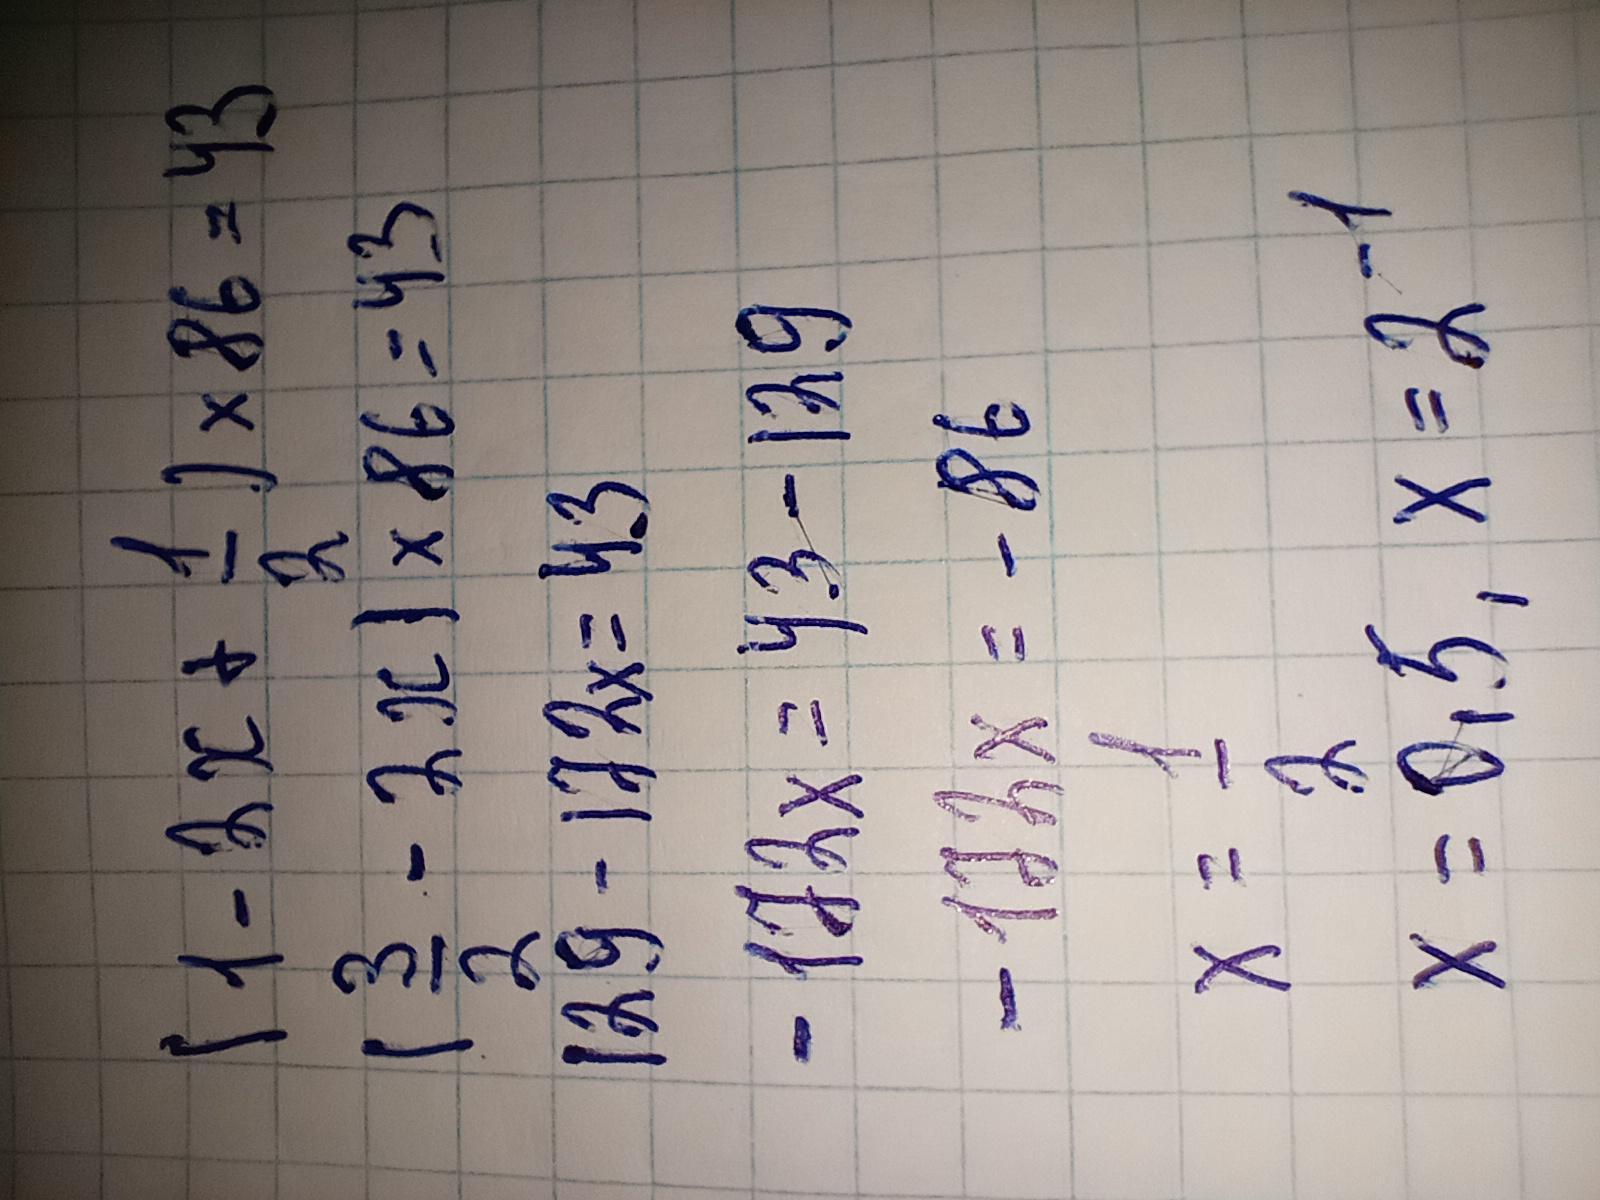 (1 - 2x + 1/2) × 86 = 43
(3/2 - 2x) × 86 = 43
129 - 172x = 43
- 172x = 43 - 129
- 172x = - 86
x = 1/2
x = 0,5, x = 2⁻¹